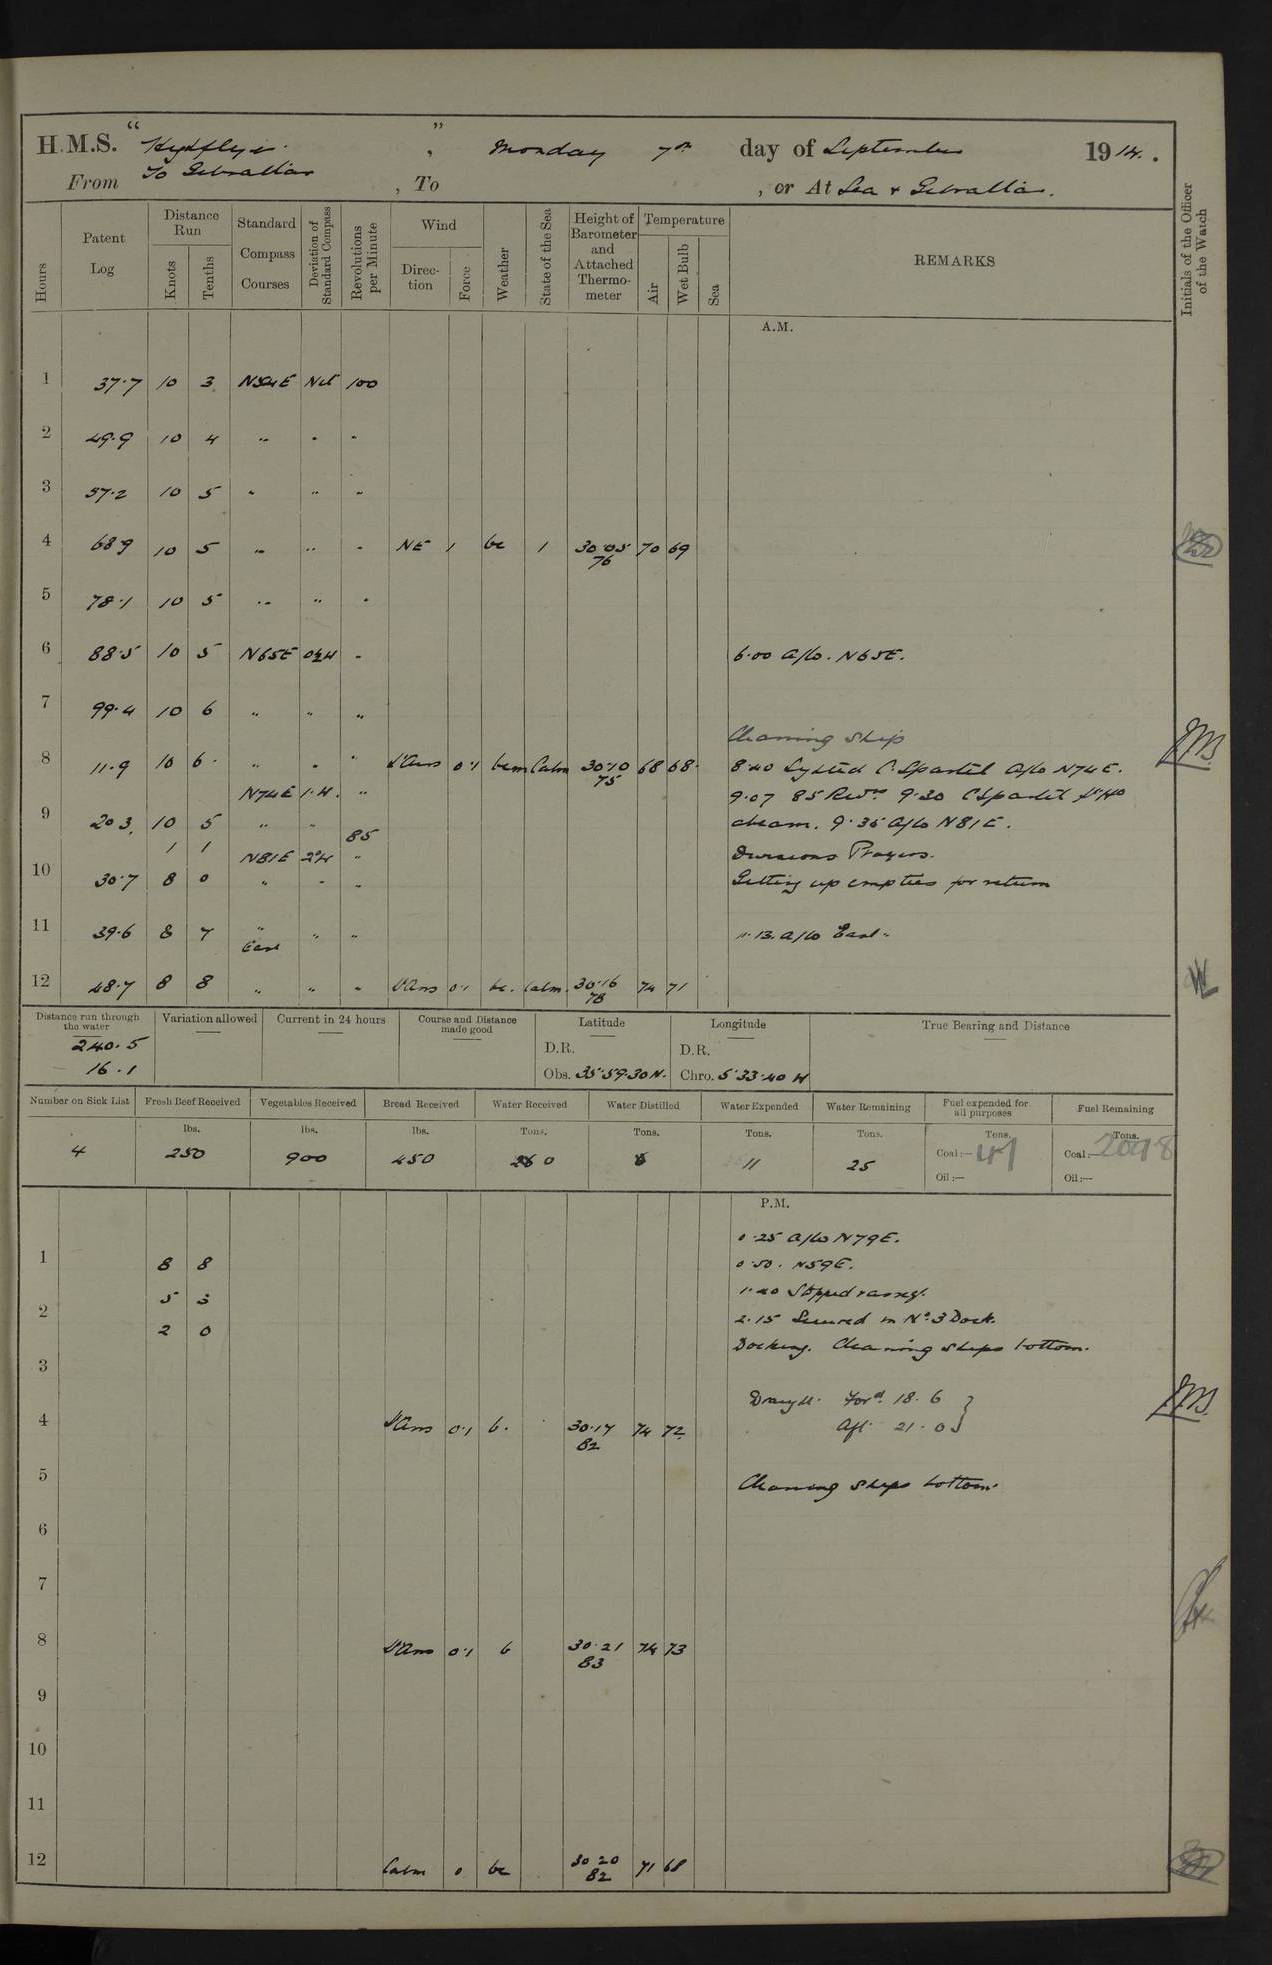 H.M.S. " Highflyer. " , Monday 7th day of September 1914.
From To Gibraltar , To , or At Sea & Gibraltar.
Hours
Patent Log
Distance Run
Knots
Tenths
Standard Compass Courses
Deviation of Standard Compass
Revolutions per Minute
Wind
Direction
Force
Weather
State of the Sea
Height of Barometer and Attached Thermometer
Temperature
Air
Wet Bulb
Sea
REMARKS
Initials of the Officer of the Watch
A.M.
1 37.7 10 3 Nil 100
2 49.9 10 4 " " "
3 57.2 10 5 " " "
4 68.9 10 5 " " " NE 1 bc 1 30.05 70 69
76
5 78.1 10 5 " " "
6 88.5 10 5 N65E 0½W " 6.00 a/co. N65E.
7 99.4 10 6 " " "
Cleaning ship
8 11.9 10 6 " " " 0.1 bcm Calm 30.10 68 68 8.40 Sighted C. Spartel a/co N74E.
75
N74E 1.W. " 9.07 85 Revs 9.30 C Spartel
9 20.3 10 5 " " abeam. 9.35 a/co N81E.
85
1 1 N81E 2W " Divisions Prayers.
10 30.7 8 0 " " " Getting up empties for return
11 39.6 8 7 " " " 11.13. a/co East.
East
12 48.7 8 8 " " " 0.1 bc. Calm. 30.16 74 71
78
Distance run through the water
Variation allowed
Current in 24 hours
Course and Distance made good
Latitude
Longitude
True Bearing and Distance
240.5
16.1
D.R. D.R.
Obs. 35.59.30 N. Chro. 5.33.40 W
Number on Sick List
Fresh Beef Received
Vegetables Received
Bread Received
Water Received
Water Distilled
Water Expended
Water Remaining
Fuel expended for all purposes
Fuel Remaining
lbs. lbs. lbs. Tons. Tons. Tons. Tons. Tons. Tons.
4 250 900 450 0 11 25 Coal:— 41 Coal:— 2098
Oil:— Oil:—
P.M.
0.25 a/co N79E.
1 8 8 0.50. N59E.
5 3 1.40 Stopped
2 2.15 Secured in No. 3 Dock.
2 0
Docking. Cleaning ships bottom.
3
Draught. Ford. 18.6 }
4 0.1 b. 30.17 74 72 Aft. 21.0
82
5 Cleaning ships bottom.
6
7
8 0.1 b 30.21 74 73
83
9
10
11
12 Calm 0 bc 30.20 71 68
82